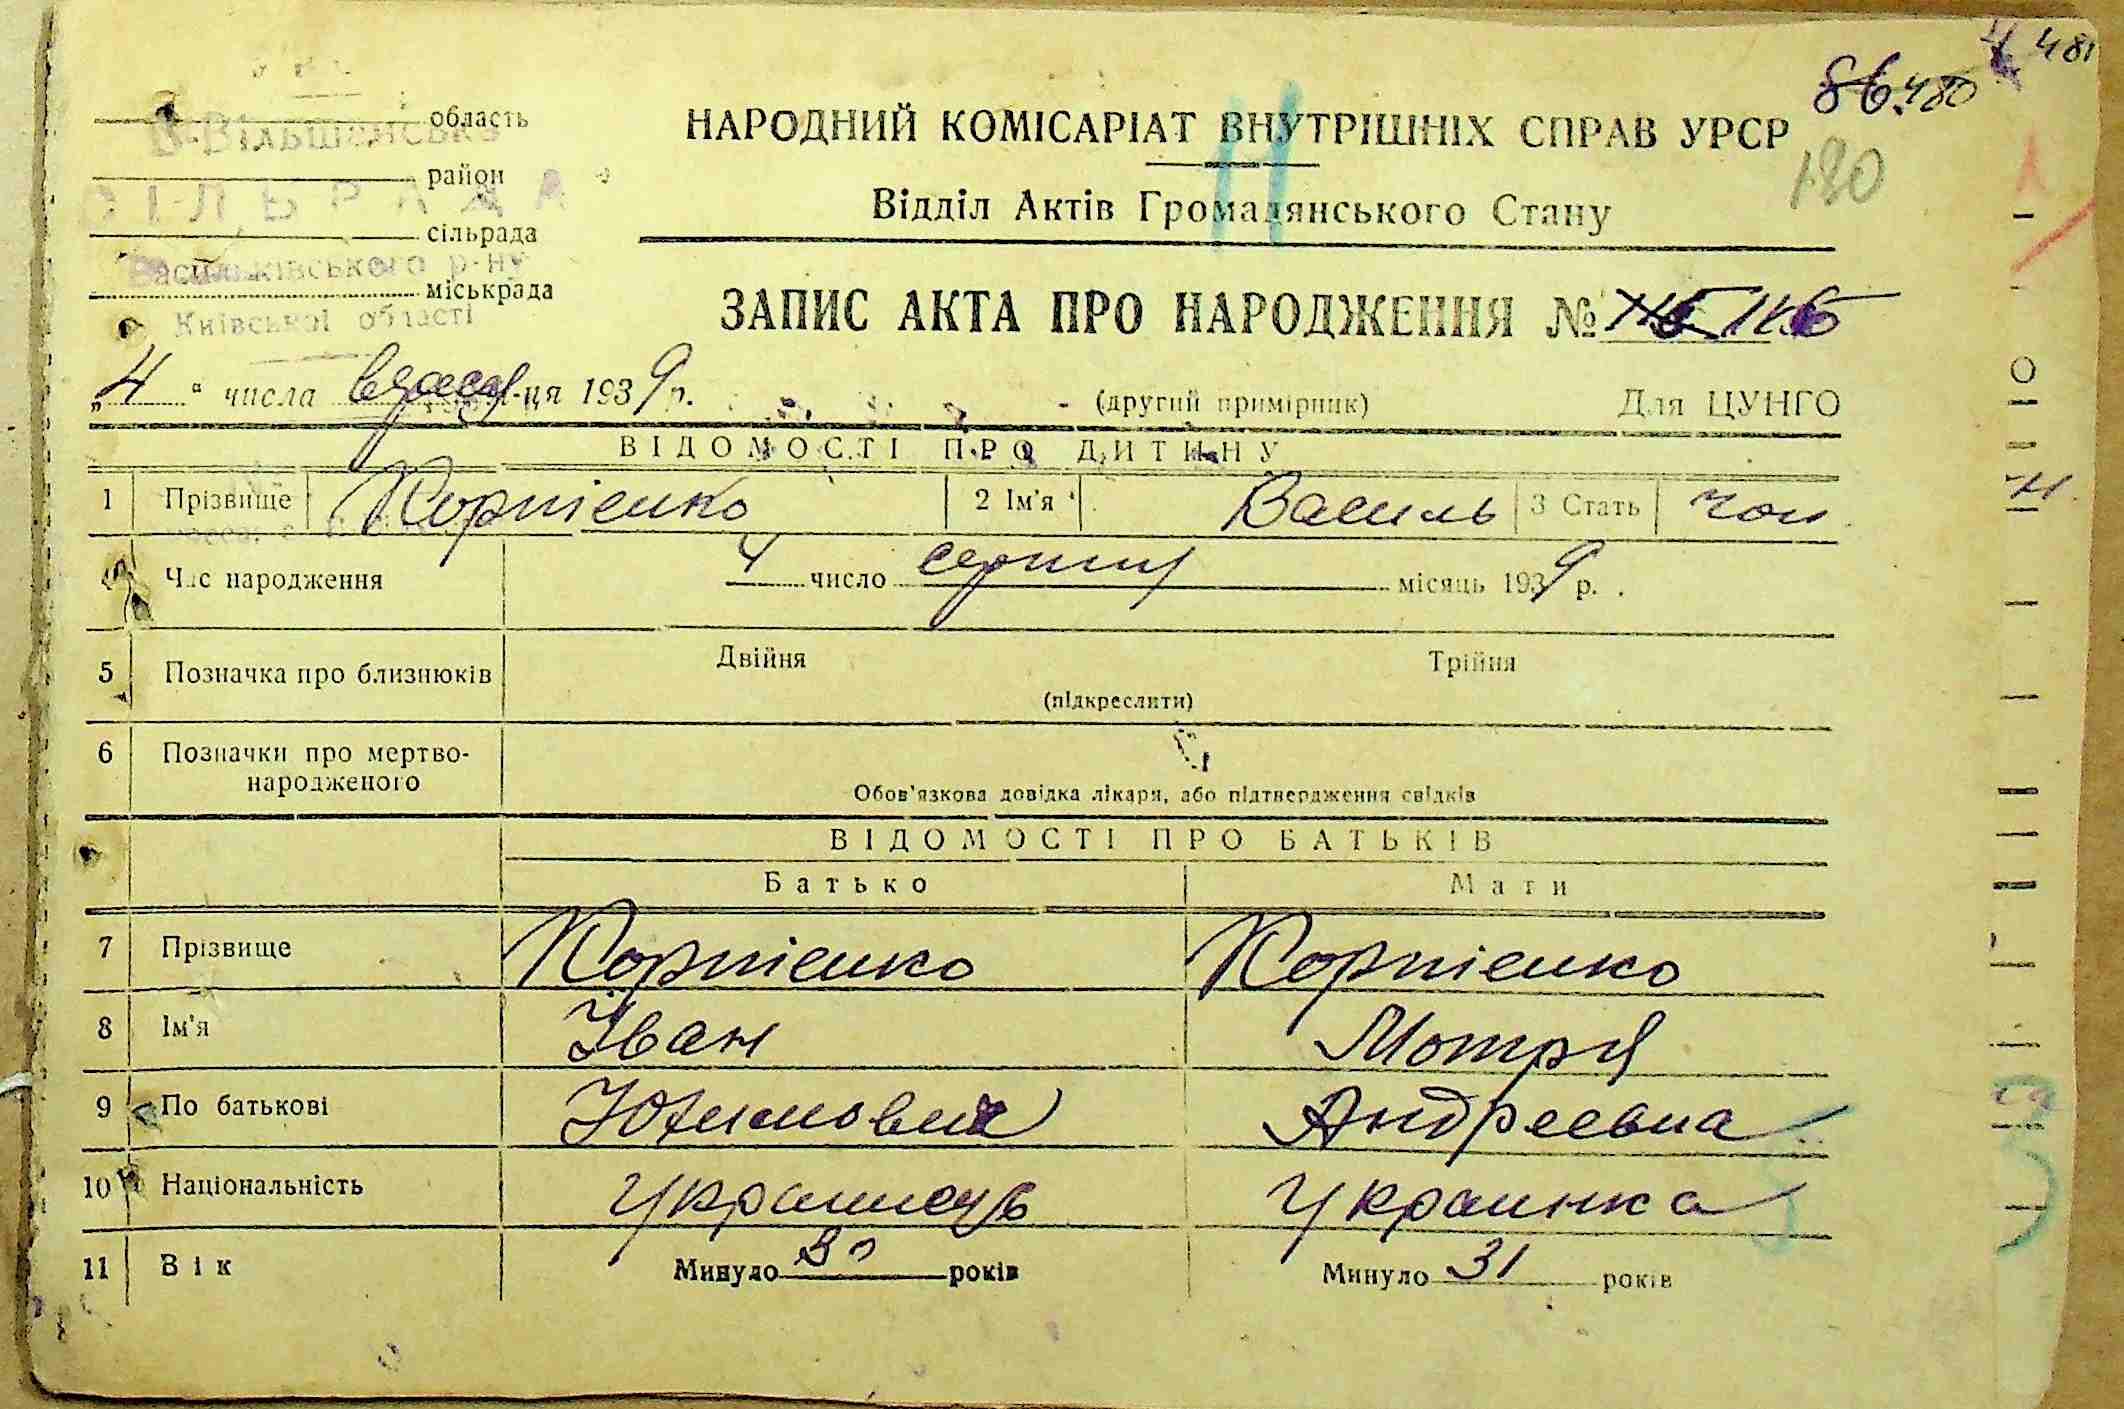 481
86. 480
180
В-Вільшанська
область
район
СІЛЬРАДА
сільрада
Васильківського р-ну
міськрада
Київської області
НАРОДНИЙ КОМІСАРІАТ ВНУТРІШНІХ СПРАВ УРСР
Відділ Актів Громадянського Стану
ЗАПИС АКТА ПРО НАРОДЖЕННЯ №
„4“ числа м-ця 1939 р. (другий примірник) Для ЦУНГО
ВІДОМОСТІ ПРО ДИТИНУ
1 Прізвище Корнієнко 2 Ім'я Василь 3 Стать чол.
Час народження 4 число серпня місяць 1939 р.
5 Позначка про близнюків Двійня Трійня
(підкреслити)
6 Позначки про мертво-
народженого
Обов'язкова довідка лікаря, або підтвердження свідків
ВІДОМОСТІ ПРО БАТЬКІВ
Батько Мати
7 Прізвище Корнієнко Корнієнко
8 Ім'я Іван Мотря
9 По батькові Юхимович Андреевна
10 Національність Украинець Украинка
11 Вік Минуло 30 років Минуло 31 років